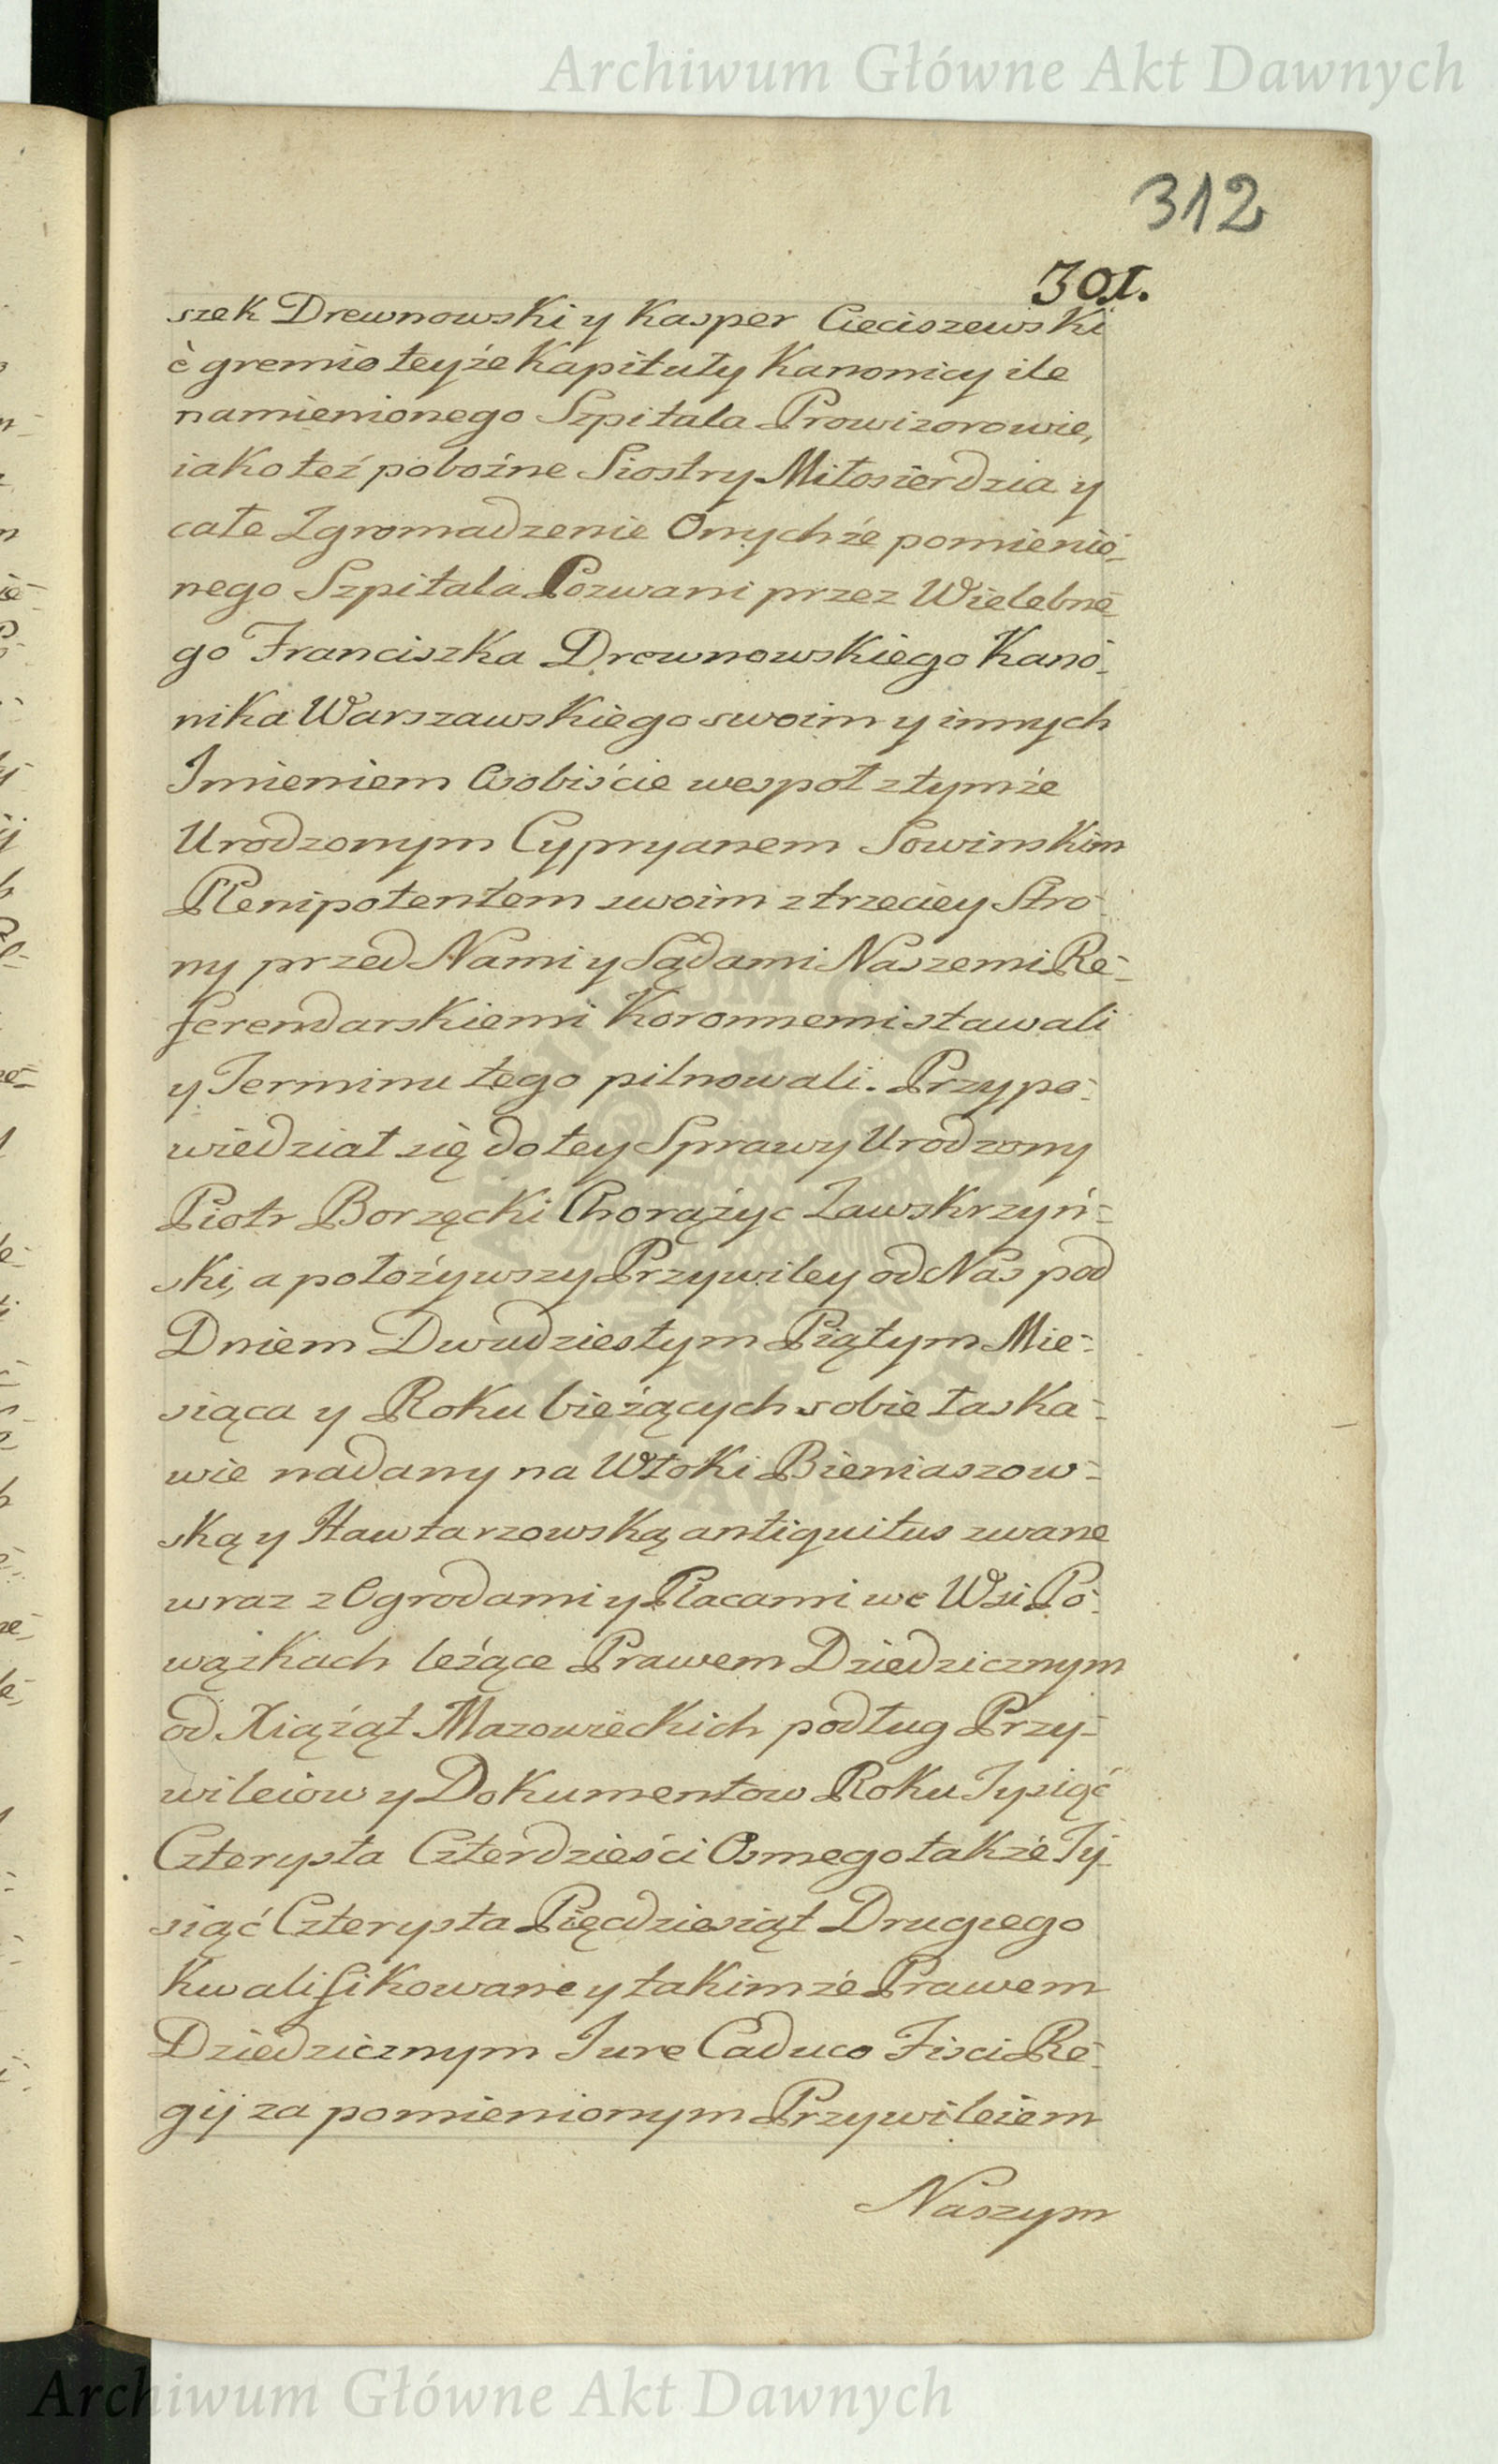 Archiwum Główne Akt Dawnych
312
301.
szek Drewnowski y Kasper Cieciszewski
è gremio teyże Kapituły Kanonicy ile
namienionego Szpitala Prowizorowie,
iako też pobożne Siostry Miłosierdzia y
całe Zgromadzenie Onychże pomienio-
nego Szpitala Pozwani przez Wielebne
go Franciszka Drewnowskiego Kano-
nika Warszawskiego swoim y innych
Imieniem Osobiście wespoł z tymże
Urodzonym Cypryanem Sowinskim
Plenipotentem swoim z trzeciey Stro-
ny przed Nami y Sądami Naszemi Re-
ferendarskiemi Koronnemi stawali
y Terminu tego pilnowali. Przypo-
wiedział się do tey Sprawy Urodzony
Piotr Borzęcki Chorążyc Zawskrzyń-
ski, a położywszy Przywiley od Nas pod
Dniem Dwudziestym Piątym Mie-
siąca y Roku bieżących sobie łaska-
wie nadany na Włoki Bieniaszow-
ską y Hawtarzowską antiquitus zwane
wraz z Ogrodami y Placami we Wsi Po-
wązkach leżące Prawem Dziedzicznym
od Xiążąt Mazowieckich podług Przy-
wileiow y Dokumentow Roku Tysiąć
Czterysta Czterdzieści Osmego także Ty-
siąć Czterysta Pięćdziesiąt Drugiego
Kwalifikowane y takimże Prawem
Dziedzicznym Jure Caduco Fisci Re-
gij za pomienionym Przywileiem
Naszym
Archiwum Główne Akt Dawnych